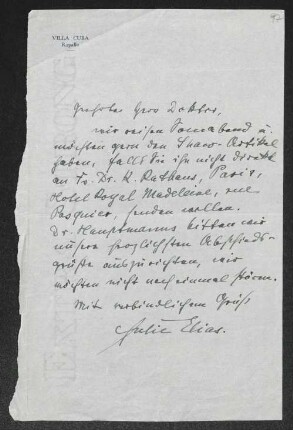 VILLA CUBA
Rapallo
Geehrter Herr Doktor,
wir reisen Sonnabend u.
möchten gern den Shaw-Artikel
haben, falls Sie ihn nicht direkt
an Dr. K. Rathaus, Paris,
Hotel Royal Madeleine, rue
Pasquier, senden wollen.
Dr. Hauptmanns bitten wir
unsere herzlichsten Abschieds-
grüße auszurichten, wir
möchten nicht noch einmal stören.
Mit verbindlichem Gruß
Julie Elias.